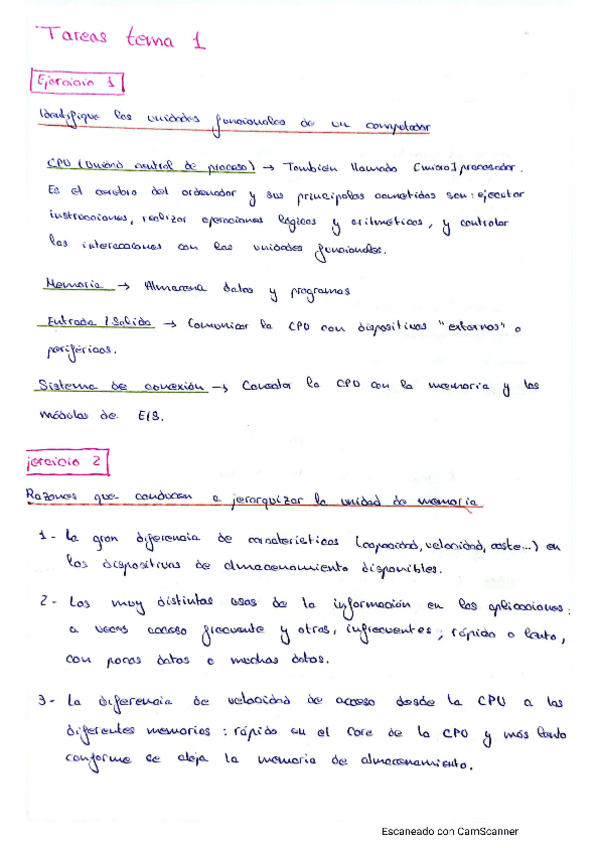 Tareas tema 1
Ejercicio 1
Identifique las unidades funcionales de un computador
CPU (Unidad central de proceso) → También llamado [micro]procesador.
Es el cerebro del ordenador y sus principales cometidos son: ejecutar
instrucciones, realizar operaciones lógicas y aritméticas, y controlar
las interacciones con las unidades funcionales.
Memoria → Almacena datos y programas
Entrada / Salida → Comunicar la CPU con dispositivos "externos" o
periféricos.
Sistema de conexión → Conectar la CPU con la memoria y los
módulos de E/S.
jercicio 2
Razones que conducen a jerarquizar la unidad de memoria
1 - La gran diferencia de características (capacidad, velocidad, coste...) en
los dispositivos de almacenamiento disponibles.
2 - Los muy distintos usos de la información en las aplicaciones:
a veces acceso frecuente y otras, infrecuentes; rápido o lento,
con pocos datos o muchos datos.
3 - La diferencia de velocidad de acceso desde la CPU a las
diferentes memorias: rápido en el core de la CPU y más lento
conforme se aleja la memoria de almacenamiento.
Escaneado con CamScanner